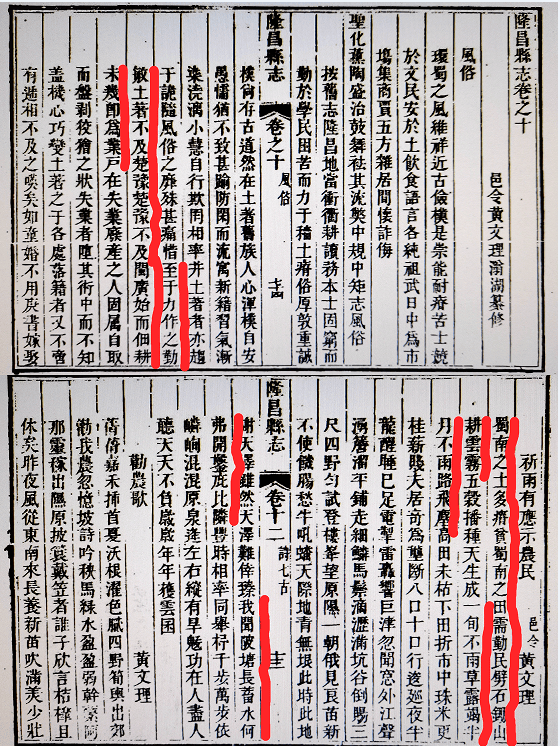 隆昌縣志卷之十
邑令黃文理湖纂修
風俗
環蜀之風維祥近古儉樸是崇能耐瘠苦士競
於文民安於土飲食語言各統祖武日中爲市
塲集商賈五方雜居間倭詐傍
聖化薰陶盛治鼓舞祛其流弊中規中矩志風俗
按舊志隆昌地當衝衢耕讀務本士困窮而
勤於學民田苦而力于穡土瘠俗厚敦重誠
隆昌縣志 卷之十 風俗
樸尙有古道然在土著舊族人心渾樸自安
愚懦猶不致甚踰防閑而流寓新籍習氣漸
染澆漓小慧自行欺罔相率并土著者亦趨
于詭隨風俗之靡殊甚痛惜至于力作之勤
敏土著不及楚豫楚豫不及閩廣始而佃耕
未幾卽爲業戶在失業廢產之人固屬自取
而盤剥狡獪之狀失業者墮其術中而不知
蓋機心巧變土著之于各處落籍者又不啻
有遞相不及之嘆矣如童婚不用庚書嫁娶
祈雨有應示農民 邑令黃文理
蜀南之土多瘠貧蜀南之田需勤民劈石鋤山
耕雲霧五穀播種天生成一旬不雨草露竭半
月不雨路飛塵高田未枯下田折市中珠米更
桂薪賤夫居奇爲壟斷八口十口行逡巡夜半
龍醒睡已足電掣雷轟響巨津忽聞意外江聲
湧簷溜平鋪走細鱗馬鬃滴瀝滿坑谷倒賜三
尺四野勻試登樓峯望原隰一朝俄見良苗新
不使饑腸愁牛吼蟠天際地青無垠此時此地
隆昌縣志 卷十二 詩七古
謝天澤雖然天澤難倖臻我聞陂塘長蓄水何
弗開鑿庇比隣豐時相率同舉杵千步萬步依
嶙峋混混原泉逢左右縱有旱魃功在人盡人
聽天天不負歲歲年年穫雲囷
勸農歌 黃文理
蒨嘉禾挿首夏沃根濯色膩四野筍輿出郊
我農忽憶坡詩吟秧馬綠水盈盈弱幹縈阿
那靈稼出隰原披簑戴笠者誰子欣言秸且
休矣昨夜風從東南來長養新苗吹滿美少壯